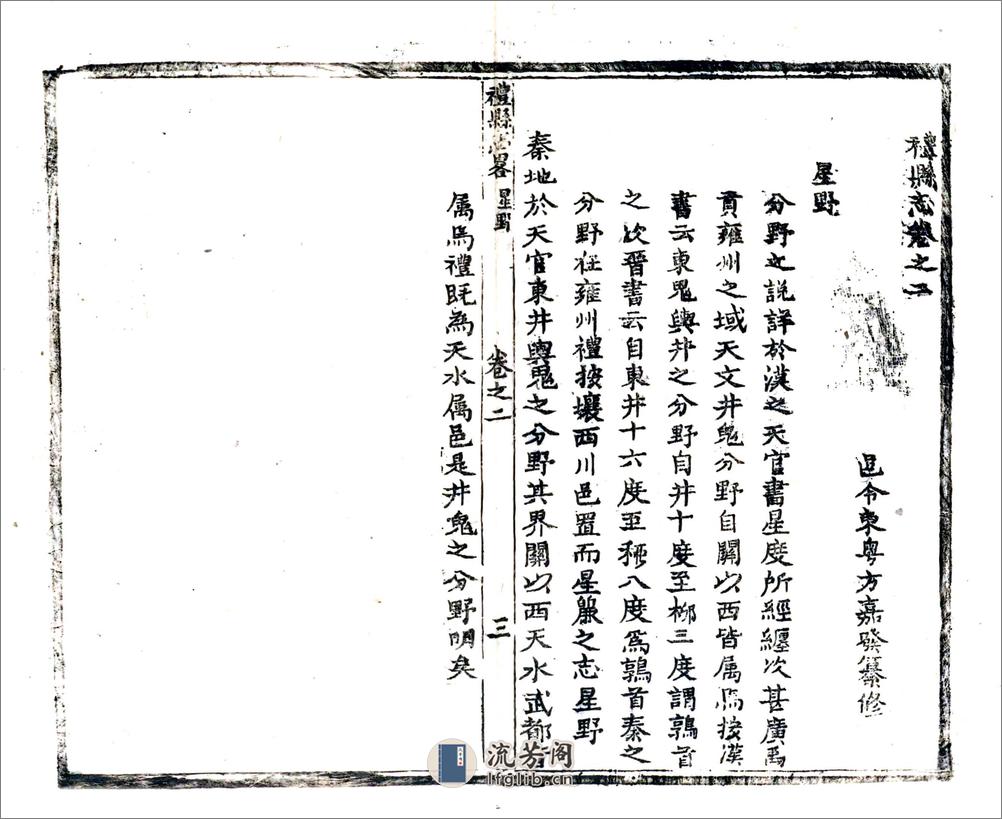 禮縣志卷之二
邑令東粤方嘉發纂修
星野
分野之説詳於漢之天官書星度所經纏次甚廣禹
貢雍州之域天文井鬼分野自關以西皆属焉按漢
書云東鬼與井之分野自井十度至柳三度謂鶉首
之次晉書云自東井十六度至栁八度爲鶉首秦之
分野在雍州禮按壤西川邑置而星麗之志星野
秦地於天官東井輿鬼之分野其界關以西天水武都皆
属焉禮既為天水属邑是井鬼之分野明矣
禮縣志畧 星野 卷之二 三
流芳阁
lfglib.cn